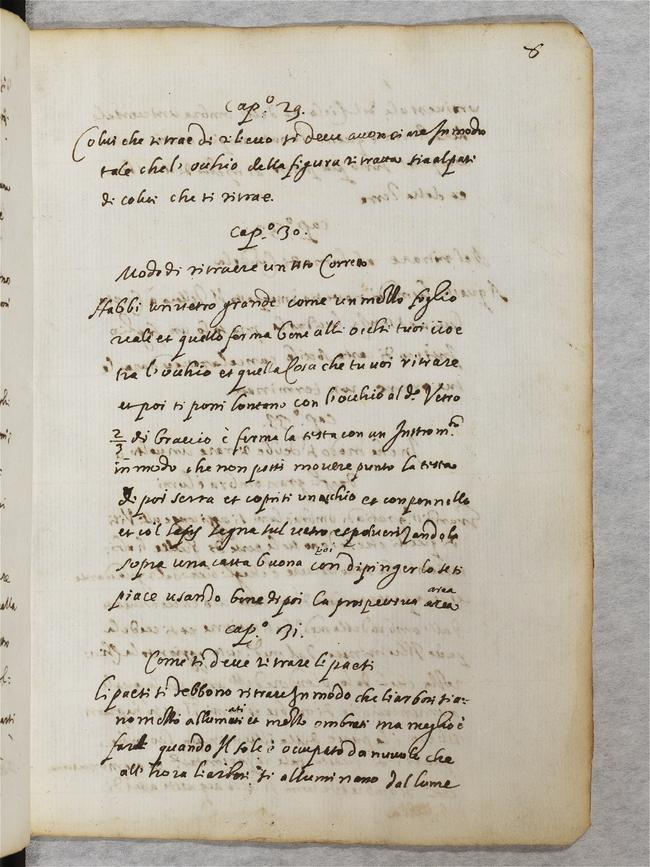 8
Cap.º 29.
Colui che ritrae di rilievo si deve acconciare In modo
tale che l'occhio della figura ritratta sia al pari
di colui che ti ritrae.
Cap.º 30.
Modo di ritraere un sito Correto
Habbi un vetro grande come un mezzo foglio
reale et quello ferma bene alli occhi tuoi cioe
tra l'occhio et quella Cosa che tu voi ritrare
et poi ti poni lontano con l'occhio al dº Vetro
2/3 di Braccio è ferma la testa con un Instromto
in modo che non possi movere punto la testa
di poi serra et copriti un occhio et con pennello
et col lapis segna sul vetro et polverizandolo
sopra una carta buona poi con dipingerlo se ti
piace usando bene di poi la prospettiva area
cap.º 31.
Come si deve ritrare li paesi
li paesi si debbono ritrare In modo che li arbori sia-
no mezzi allumati et mezzo ombrati ma meglio è
farli quando Il sole è ocupato da nuvole che
all'hora li arbori si alluminano dal lume